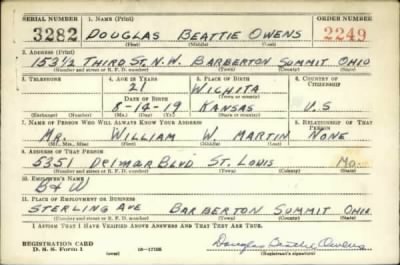 SERIAL NUMBER 1. NAME (Print) ORDER NUMBER
3282 DOUGLAS BEATTIE OWENS 2249
(First) (Middle) (Last)
2. ADDRESS (Print)
153 1/2 THIRD ST. N.W. BARBERTON SUMMIT OHIO
(Number and street or R. F. D. number) (Town) (County) (State)
3. TELEPHONE 4. AGE IN YEARS 5. PLACE OF BIRTH 6. COUNTRY OF CITIZENSHIP
21 WICHITA
(Town or county)
DATE OF BIRTH
8-14-19 KANSAS U.S
(Exchange) (No.) (Mo.) (Day) (Yr.) (State or country)
7. NAME OF PERSON WHO WILL ALWAYS KNOW YOUR ADDRESS 8. RELATIONSHIP OF THAT PERSON
MR. WILLIAM W. MARTIN NONE
(Mr., Mrs., Miss) (First) (Middle) (Last)
9. ADDRESS OF THAT PERSON
5351 DELMAR BLVD ST. LOUIS MO.
(Number and street or R. F. D. number) (Town) (County) (State)
10. EMPLOYER'S NAME
B & W
11. PLACE OF EMPLOYMENT OR BUSINESS
STERLING AVE BARBERTON SUMMIT OHIO
(Number and street or R. F. D. number) (Town) (County) (State)
I AFFIRM THAT I HAVE VERIFIED ABOVE ANSWERS AND THAT THEY ARE TRUE.
REGISTRATION CARD
D. S. S. Form 1 (over) Douglas Beattie Owens
(Registrant's signature)